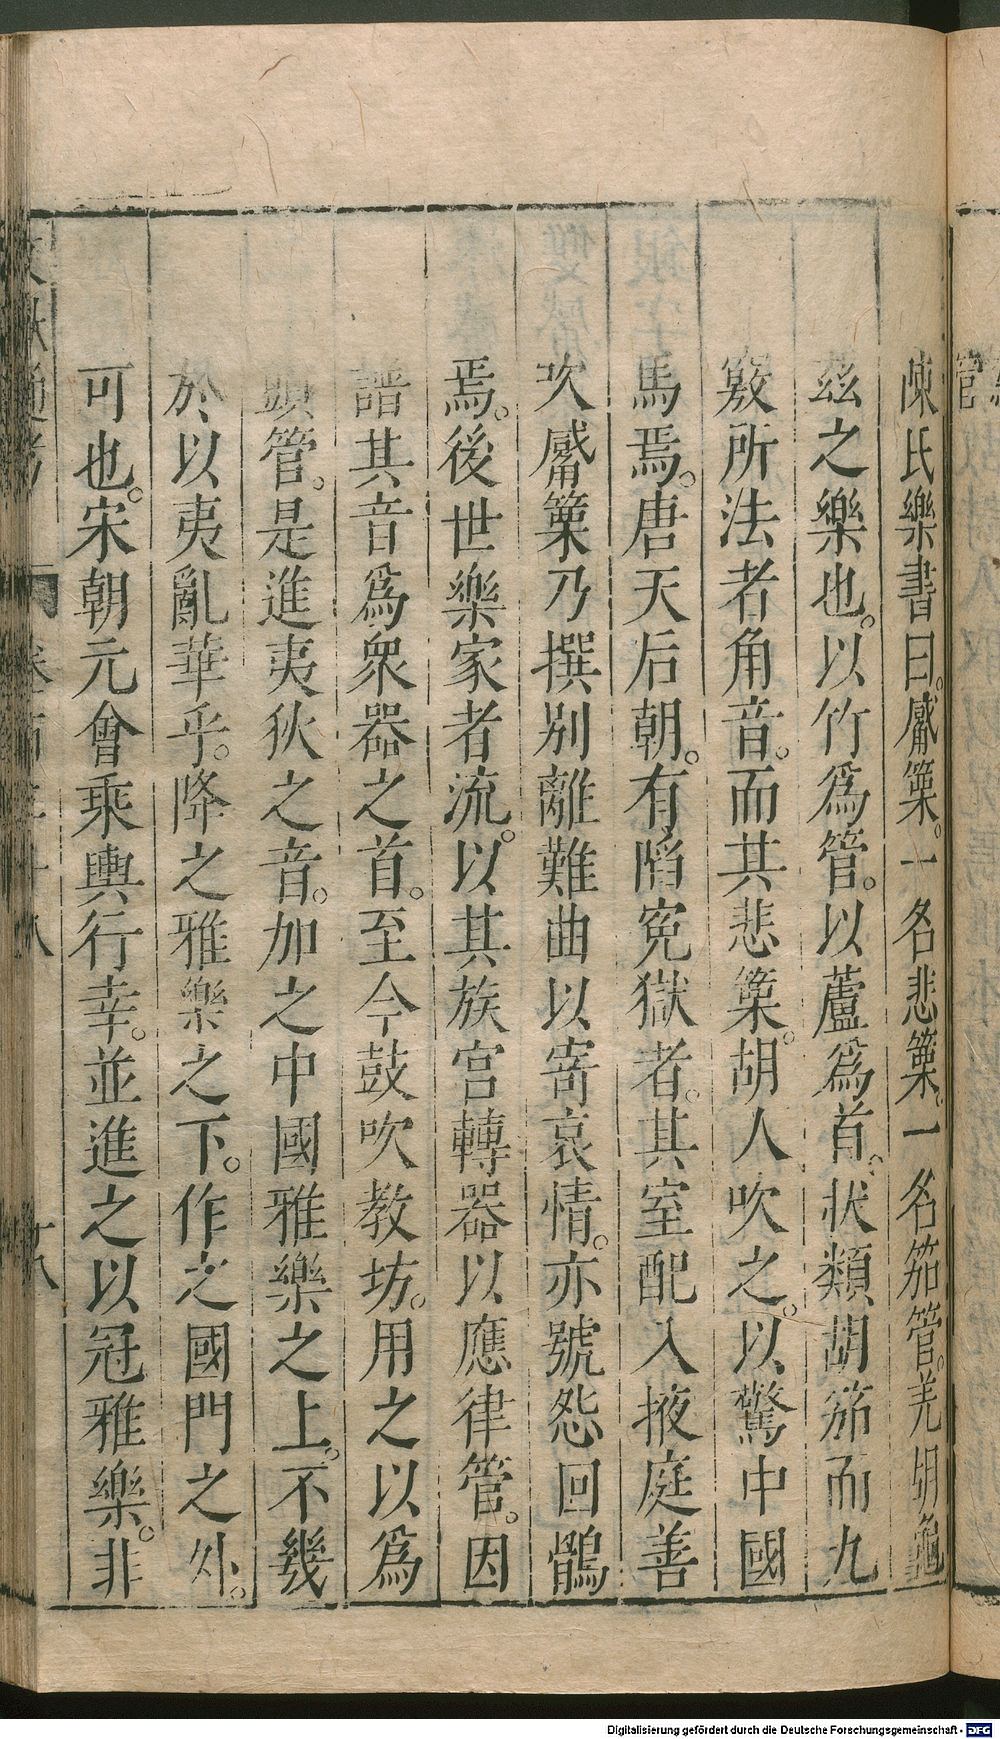 陳氏樂書曰。觱篥。一名悲篥。一名笳管。羌胡龜
茲之樂也。以竹爲管。以蘆爲首。状類胡笳而九
竅所法者角音。而其悲篥。胡人吹之。以驚中國
馬焉。唐天后朝。有陷寃獄者。其室配入掖庭善
吹觱篥乃撰别離難曲以寄哀情。亦號怨回鶻
焉。後世樂家者流。以其族宫轉器以應律管。因
譜其音爲衆器之首。至今鼓吹教坊。用之以爲
頭管。是進夷狄之音。加之中國雅樂之上。不幾
於以夷亂華乎。降之雅樂之下。作之國門之外。
可也。宋朝元會乘輿行幸。並進之以冠雅樂。非
Digitalisierung gefördert durch die Deutsche Forschungsgemeinschaft - DFG